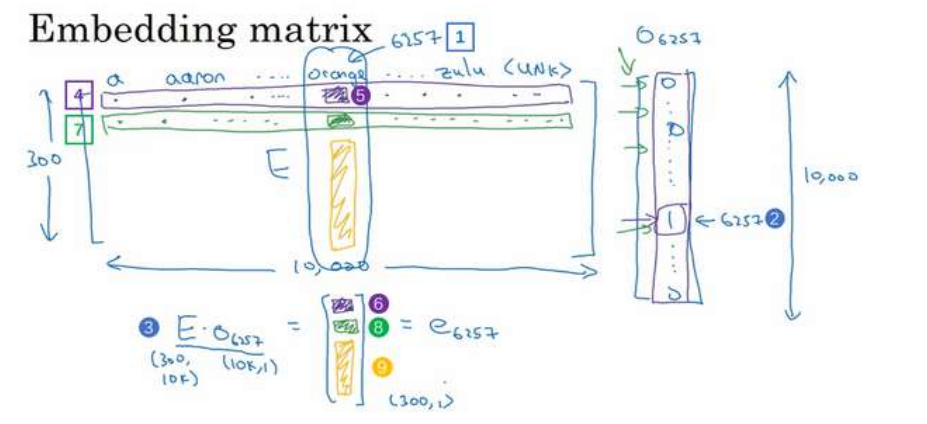 Embedding matrix
6257 1
O6257
a aaron ..... orange ..... zulu <UNK>
4 5
7
300
E
10,000
1 ← 6257 2
10,000
0
0
0
3 E · O6257 = 6 8 9 = e6257
(300, 10K) (10K,1)
(300,1)